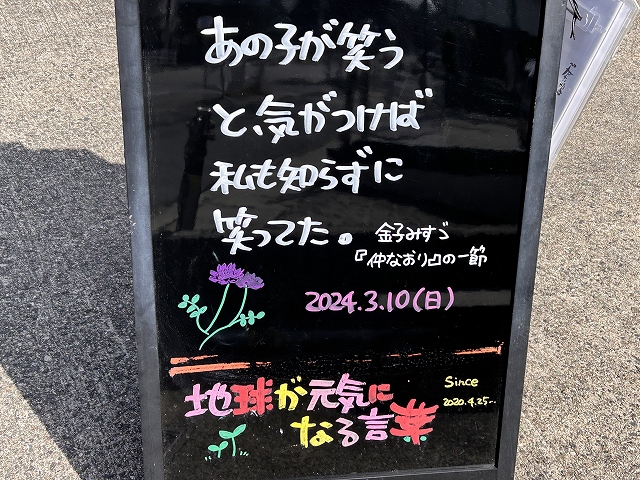 あの子が笑う
と、気がつけば
私も知らずに
笑ってた。
金子みすゞ
『仲なおり』の一節
2024.3.10(日)
地球が元気に
なる言葉
Since
2020.4.25~